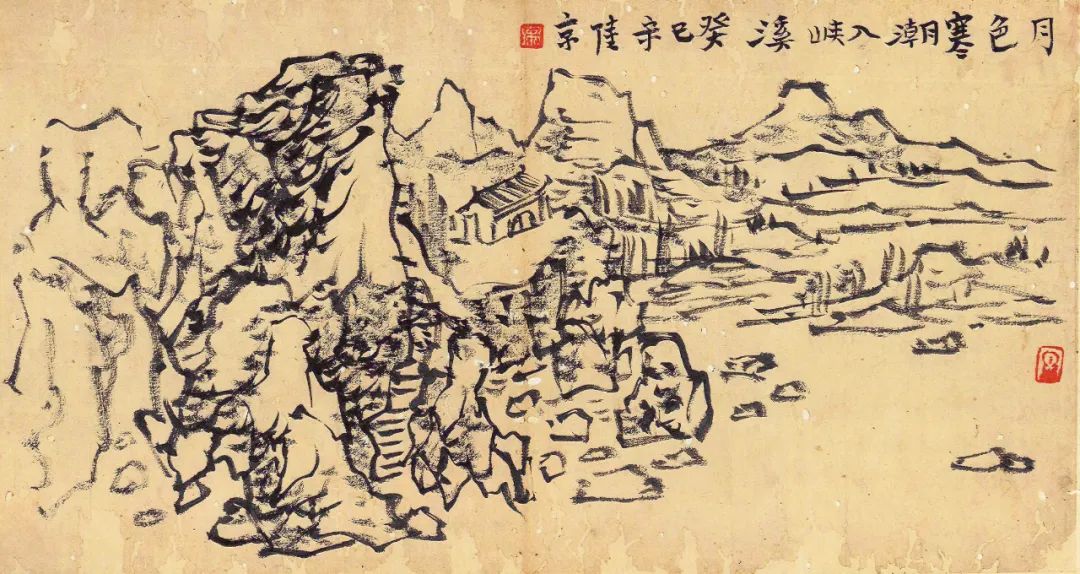 月色寒潮入峡溪 癸巳 辛 京